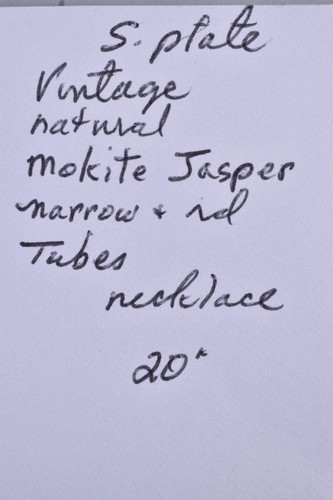 S. plate
Vintage
natural
Mokite Jasper
narrow + rd
Tubes
necklace
20"